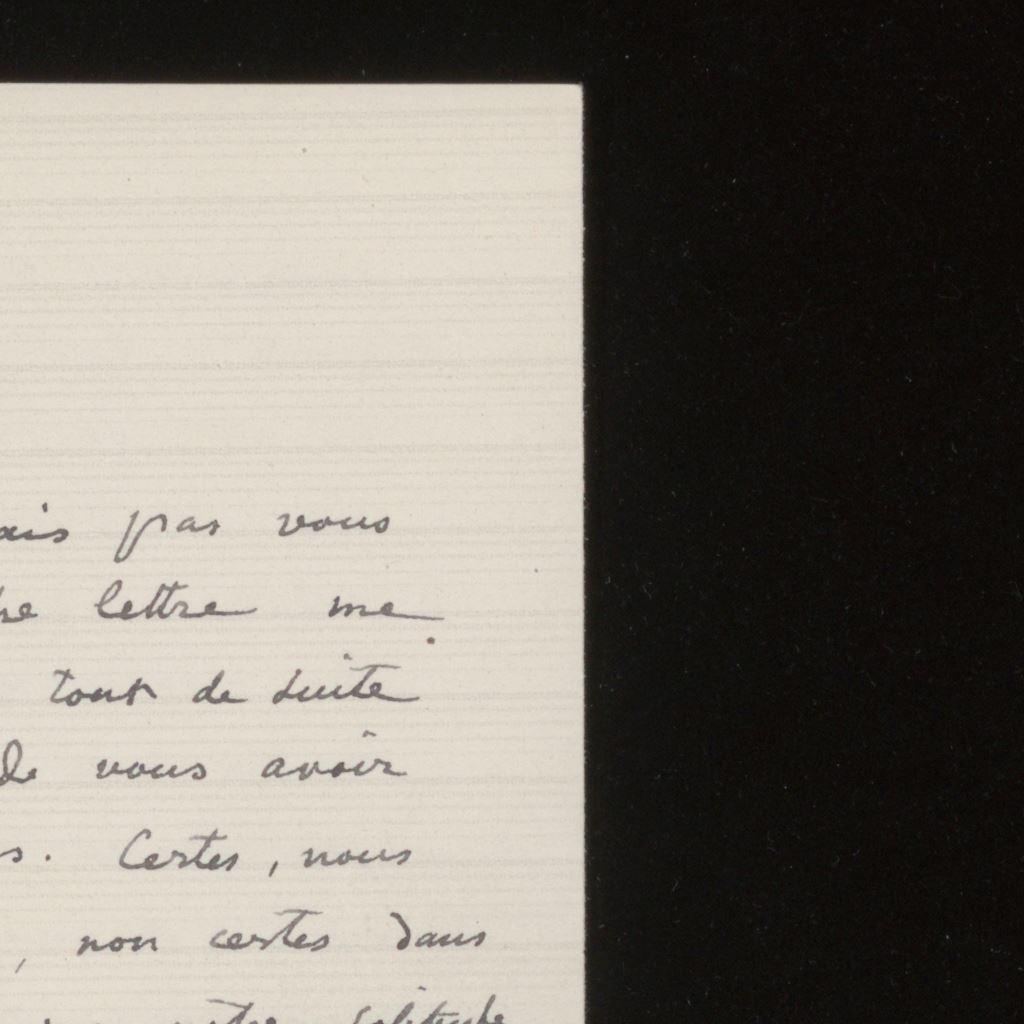 ais pas vous
lettre me
tout de suite
de vous avoir
s. Certes, nous
, non certes dans
solitude